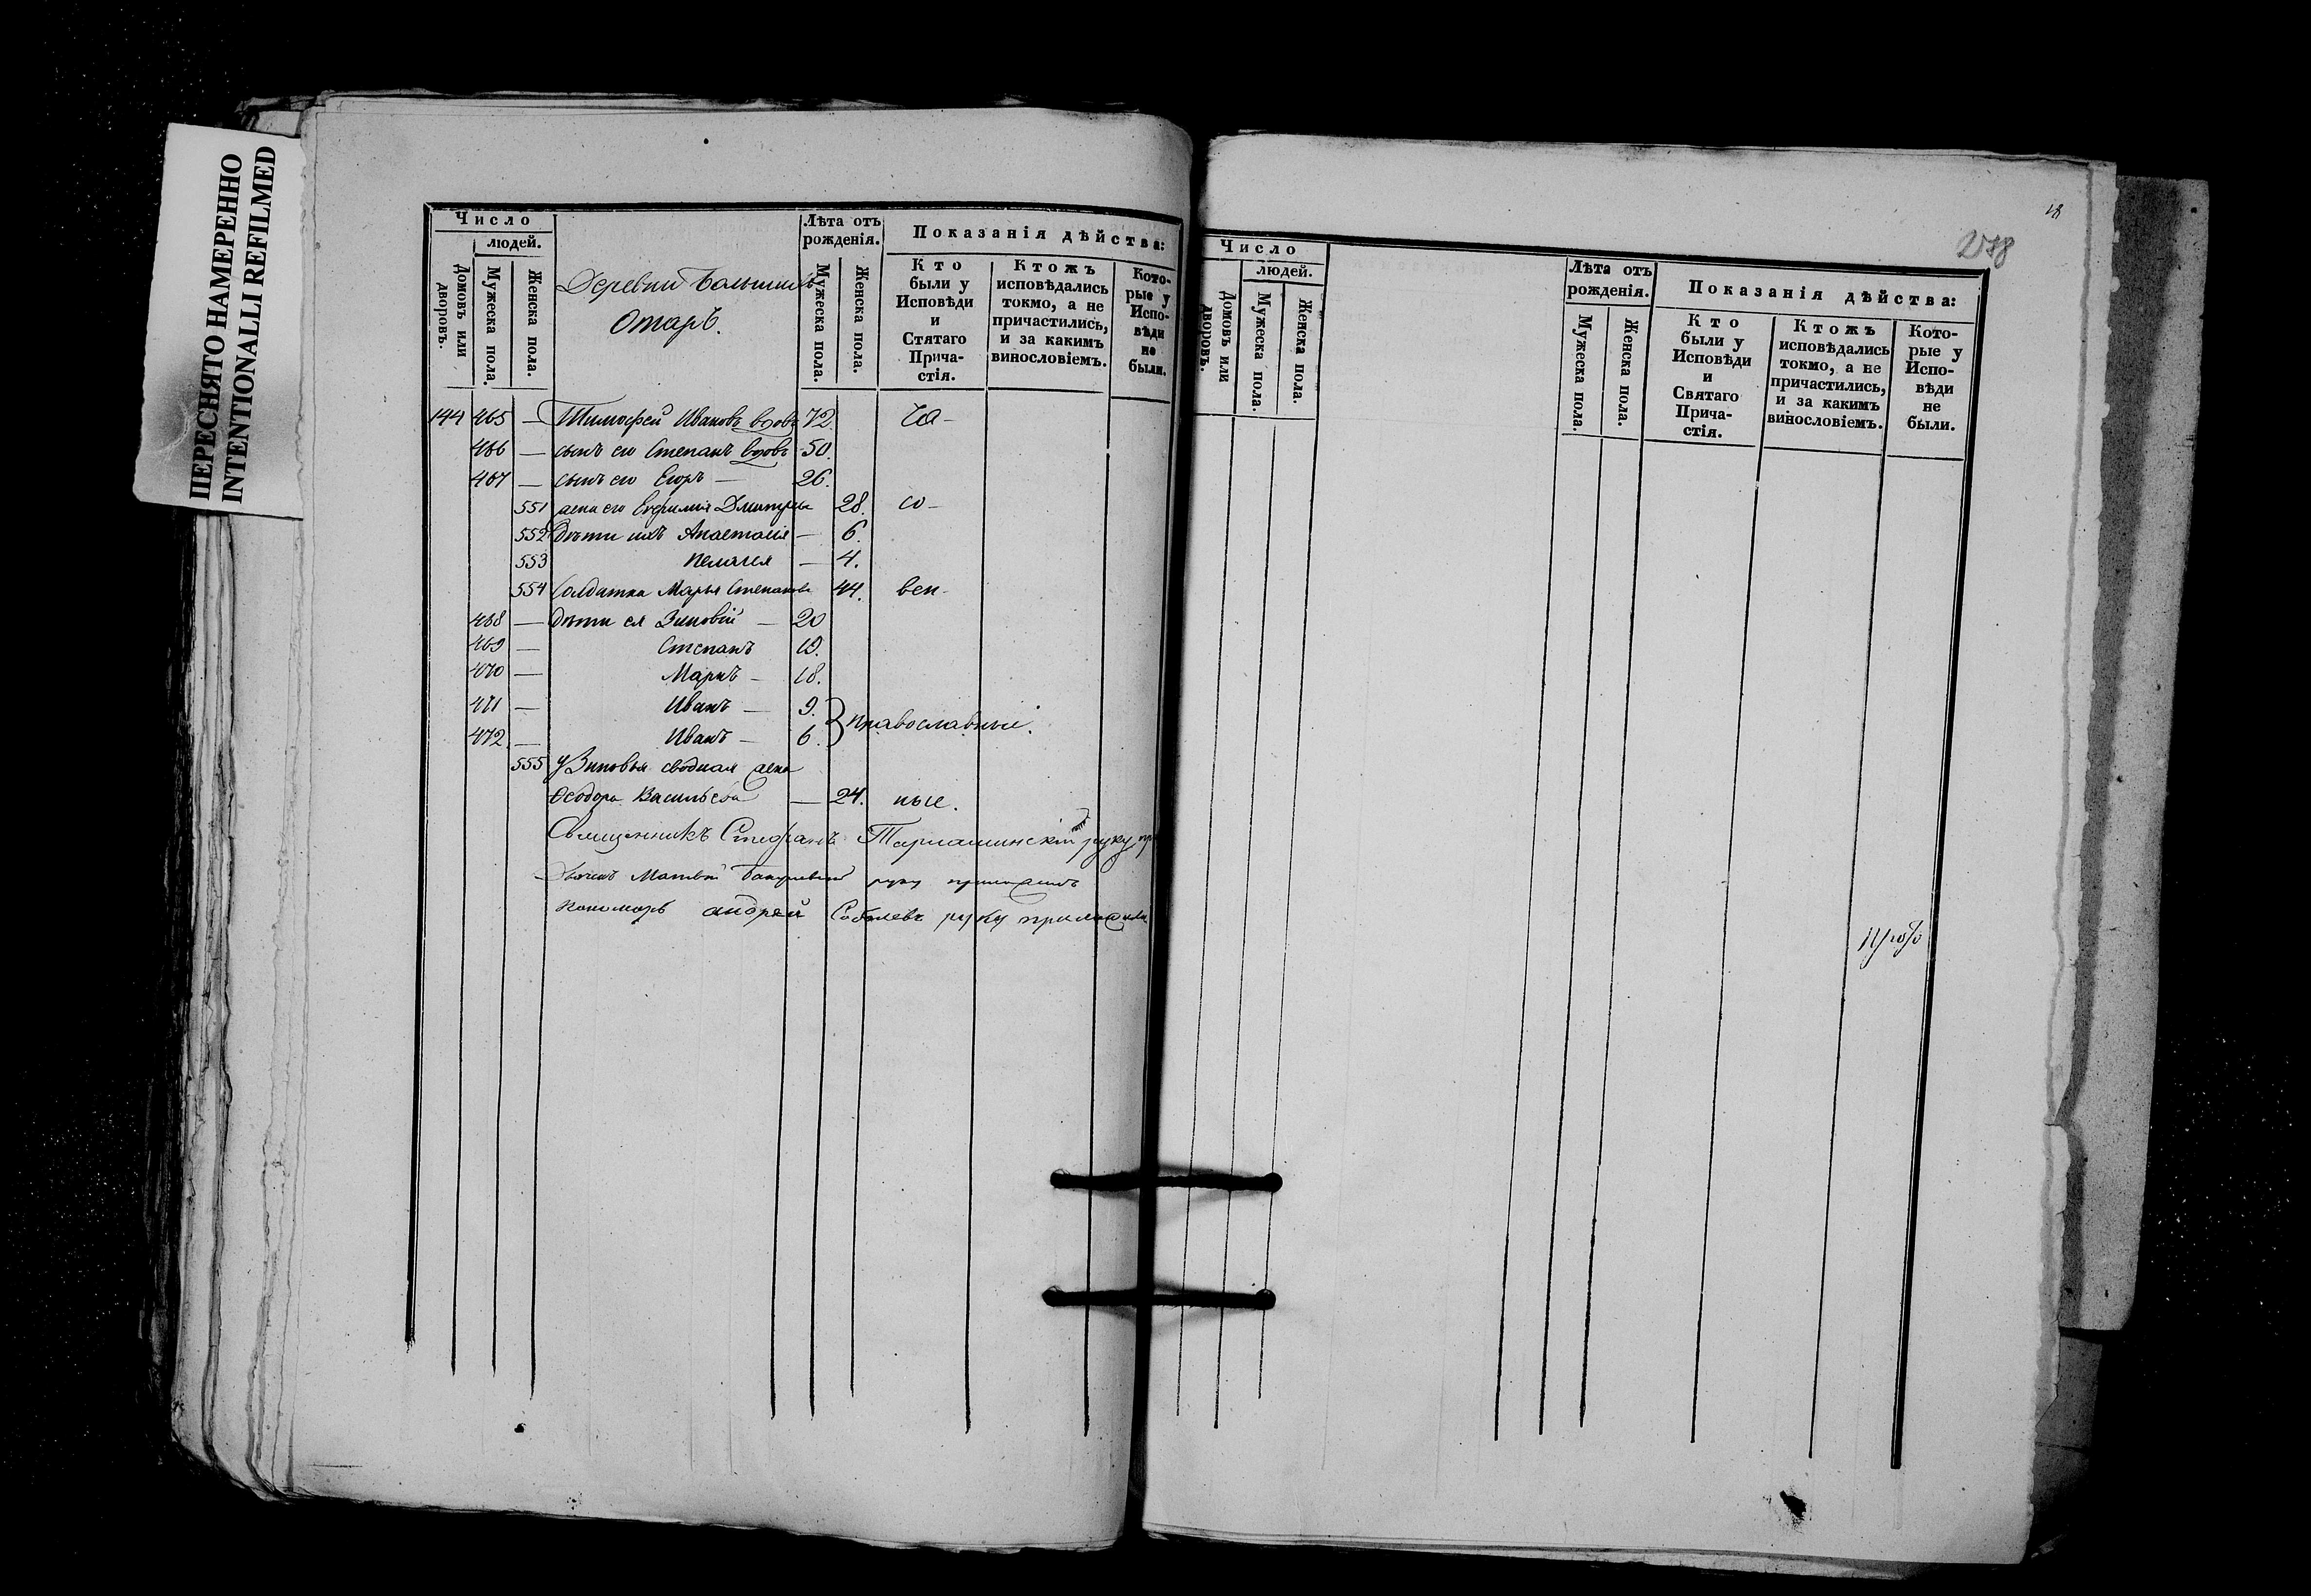 ПЕРЕСНЯТО НАМЕРЕННО
INTENTIONALLI REFILMED
Число
людей.
Домовъ или дворовъ.
Мужеска пола.
Женска пола.
Деревни Большихъ
Отаръ.
Лѣта отъ рожденія.
Мужеска пола.
Женска пола.
Показанія дѣйства:
Кто
были у
Исповѣди
и
Стятаго
Прича-
стія.
Ктожъ
исповѣдались
токмо, а не
причастились,
и за какимъ
винословіемъ.
Кото-
рые у
Испо-
вѣди
не
были.
144 465 — Тимофей Ивановъ вдовъ 72
466 — сынъ его Степанъ вдовъ 50.
467 — сынъ его Егоръ — 26.
551 жена его Евфимія Дмитріе 28. со-
552 Дѣти ихъ Анастасія — 6.
553 Пелагея — 4.
554 Солдатка Марья Степанова 44. вен-
468 — Дѣти ея Зиновій — 20
469 — Степанъ 19.
470 — Маркъ — 18.
471 — Иванъ — 9.
православные.
472. — Иванъ — 6.
555 У Зиновья сводная жена
Ѳеодора Васильева — 24. ные.
Священникъ Стефанъ руку
Матвей руку приложилъ
Пономарь андрей Соболевъ руку приложилъ
18
Число
людей.
Домовъ или дворовъ.
Мужеска пола.
Женска пола.
Лѣта отъ рожденія.
Мужеска пола.
Женска пола.
Показанія дѣйства:
Кто
были у
Исповѣди
и
Святаго
Прича-
стія.
Ктожъ
исповѣдались
токмо, а не
причастились,
и за какимъ
винословіемъ.
Кото-
рые у
Испо-
вѣди
не
были.